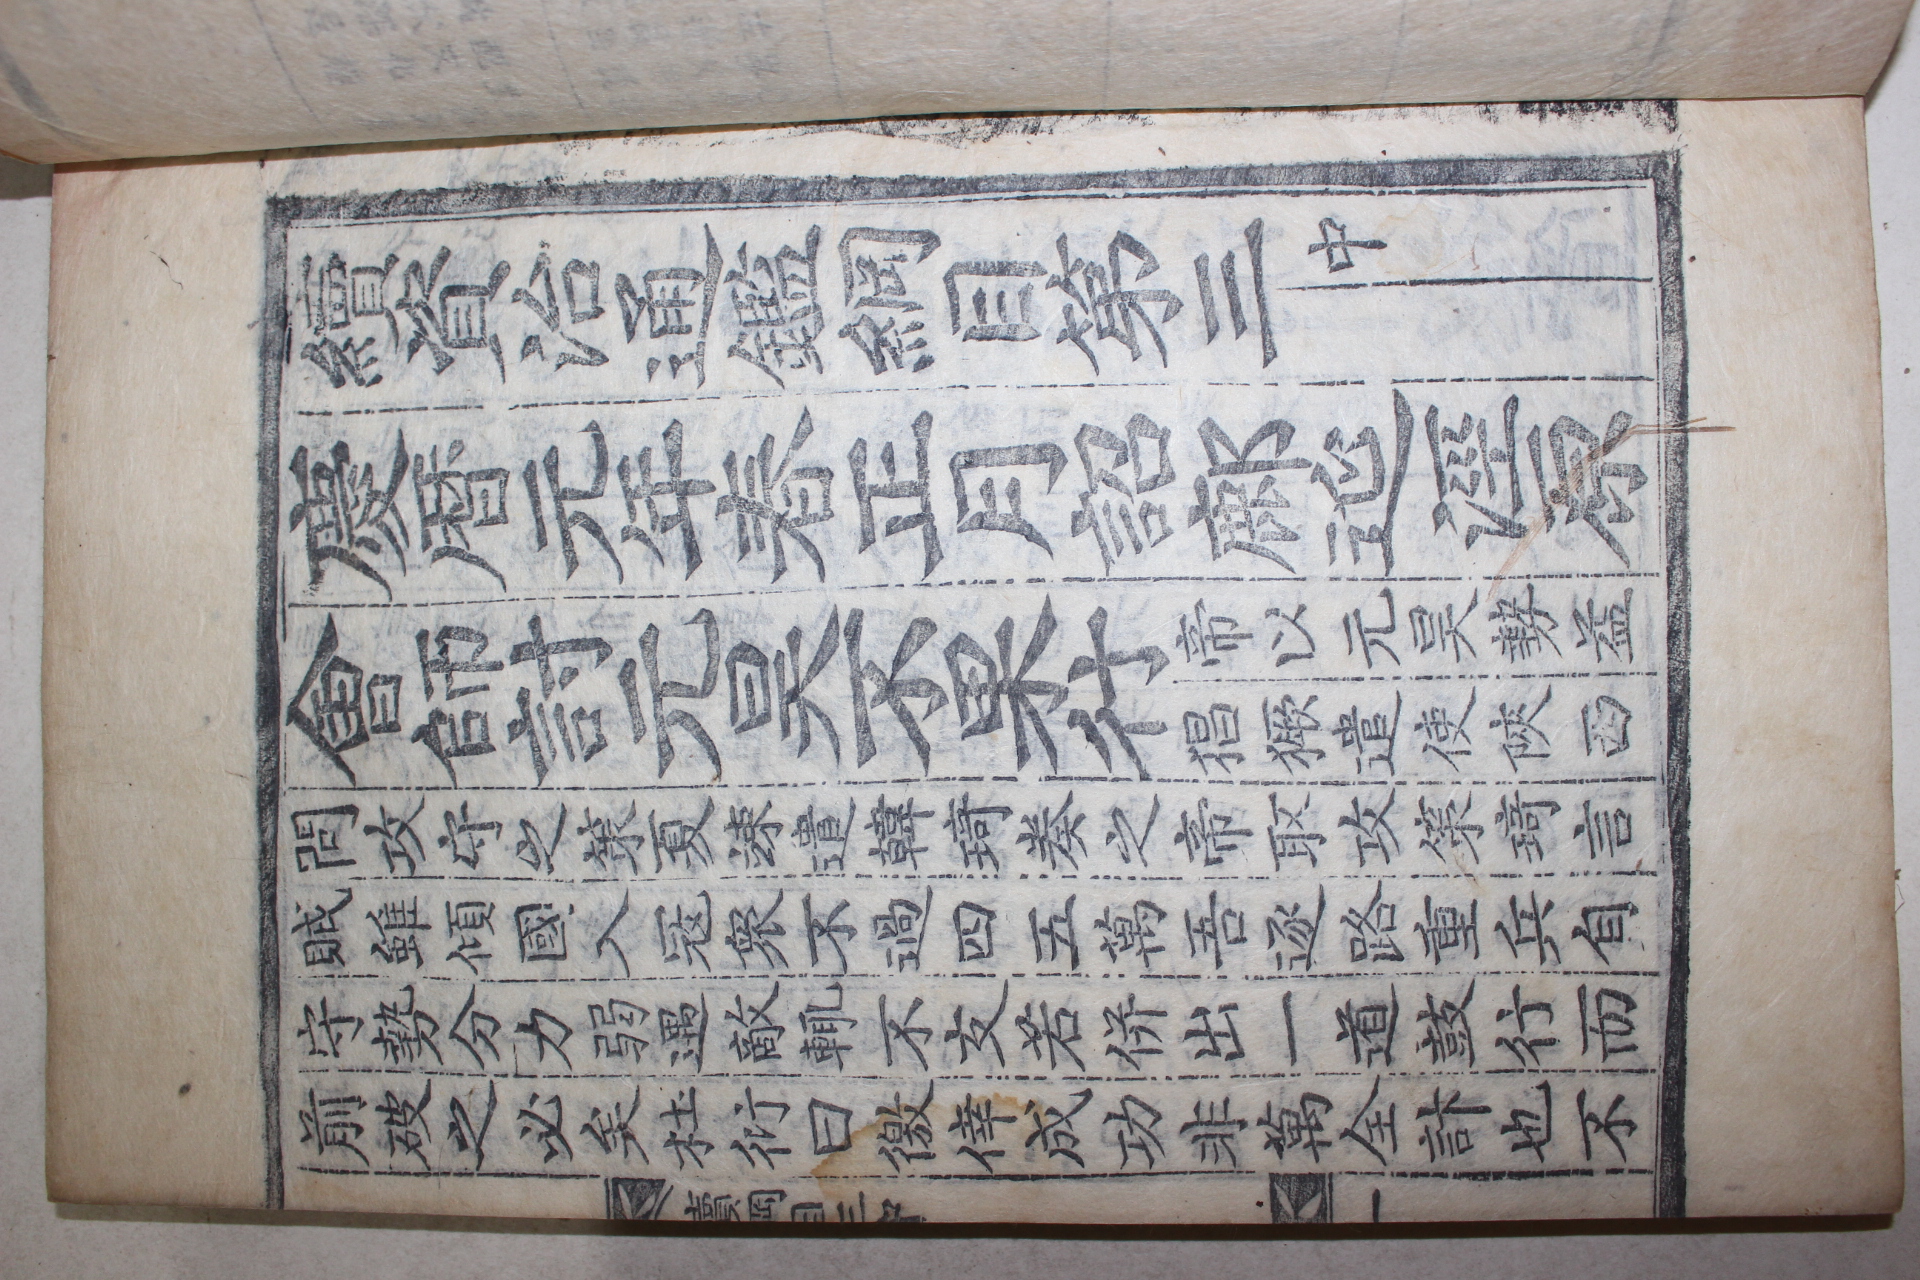 續資治通鑑綱目第三 中
慶曆元年春正月詔鄜延涇原
會師討元昊不果行 帝以元昊勢益
猖獗遣使陜西
問攻守之策夏竦遣韓琦奏之帝取攻策琦言
賊雖傾國入寇衆不過四五萬吾逐路重兵自
守勢分力弱遇敵輒不支若併出一道鼓行而
前破之必矣杜衍曰徼倖成功非萬全計也不
續綱目三中
一